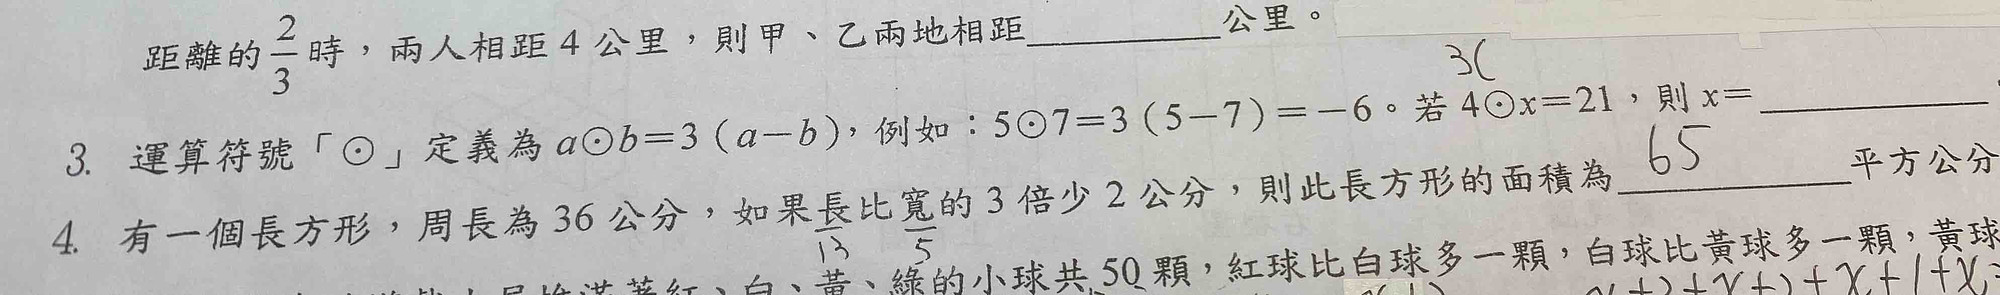 距離的 2/3 時，兩人相距 4 公里，則甲、乙兩地相距__________公里。
3(
3. 運算符號「⊙」定義為 a⊙b=3（a-b），例如：5⊙7=3（5-7）=-6。若 4⊙x=21，則 x=__________
4. 有一個長方形，周長為 36 公分，如果長比寬的 3 倍少 2 公分，則此長方形的面積為 65 平方公分
13 5
紅、白、黃、綠的小球共 50 顆，紅球比白球多一顆，白球比黃球多一顆，黃球